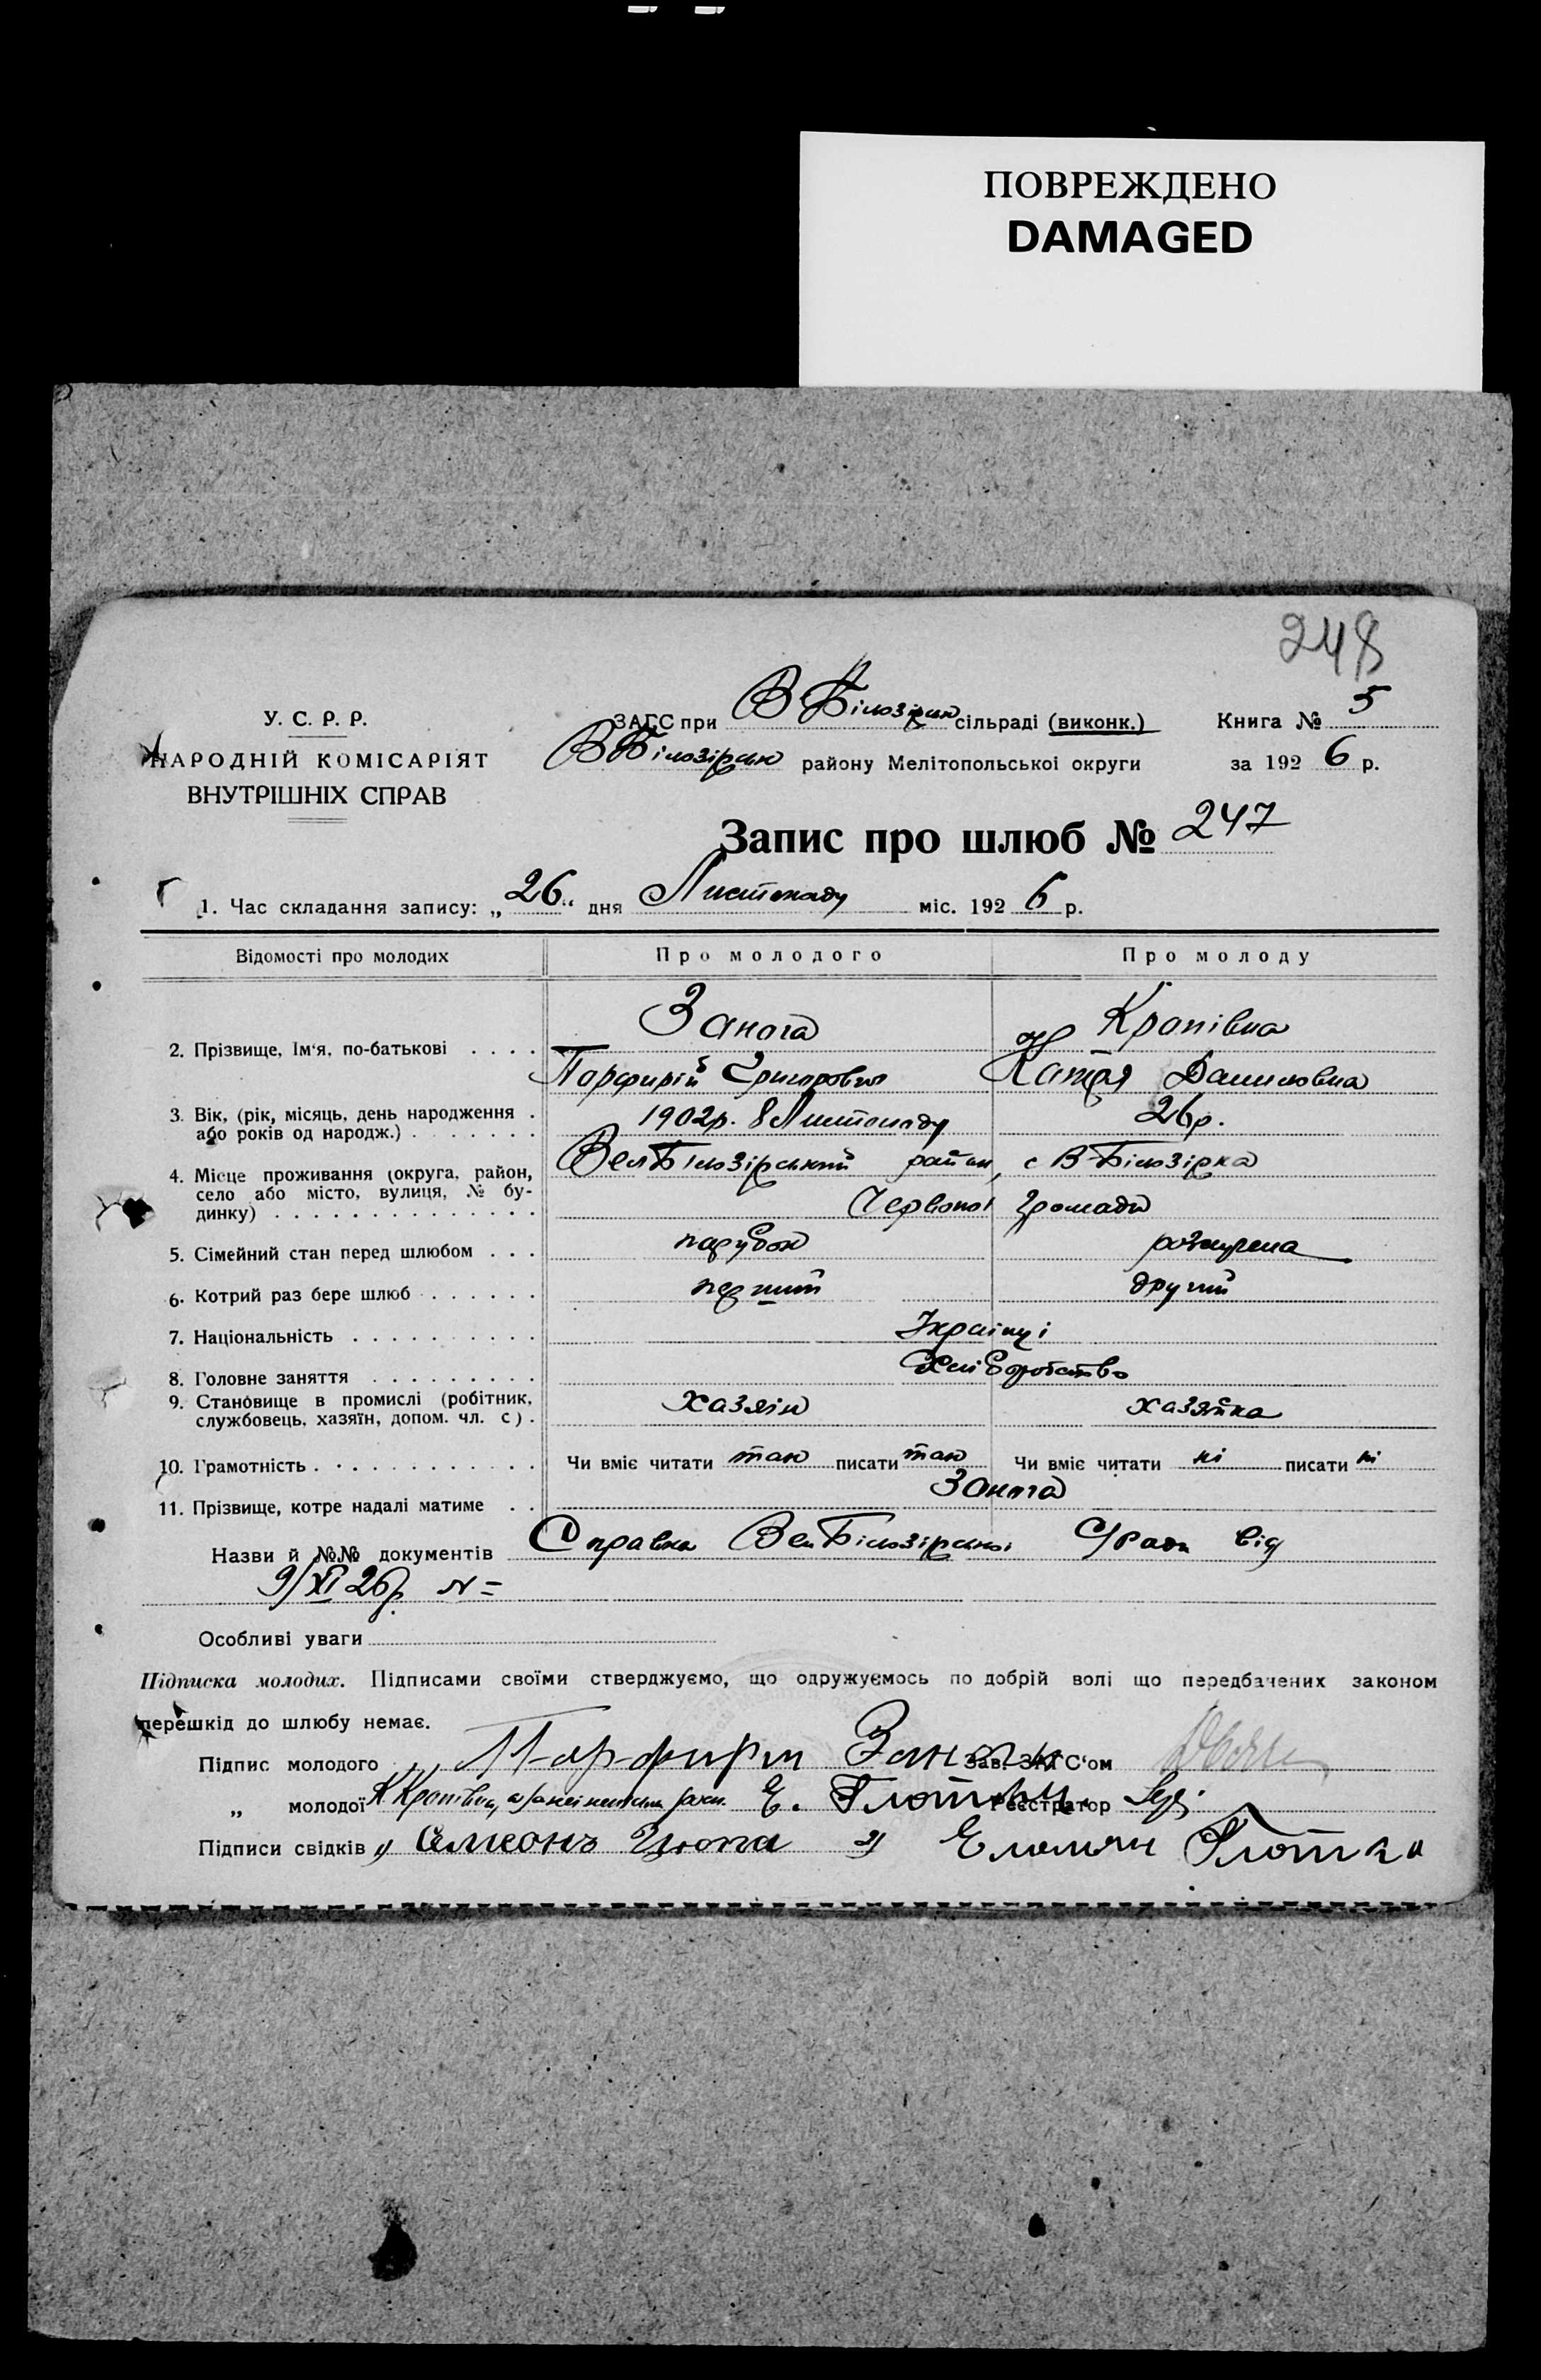 ПОВРЕЖДЕНО
DAMAGED
248
У. С. Р. Р.
НАРОДНІЙ КОМІСАРІЯТ
ВНУТРІШНІХ СПРАВ
ЗАГС при В Білозірськ сільраді (виконк.)
В Білозірськ району Мелітопольської округи
Книга № 5
за 192 6 р.
Запис про шлюб № 247
1. Час складання запису: „ 26 “ дня Листопаду міс. 192 6 р.
Відомості про молодих Про молодого Про молоду
2. Прізвище, Ім'я, по-батькові . . . . Занога Кропівка
Порфирій Григорович Катря Даниловна
3. Вік, (рік, місяць, день народження .
або років од народж.) . . . . . . . 1902р. 8 Листопаду 26р.
4. Місце проживання (округа, район,
село або місто, вулиця, № бу-
динку) . . . . . . . . . . . . . .
Вел Білозірський район, с В-Білозірка
Червоної громади
5. Сімейний стан перед шлюбом . . . парубок розлучена
6. Котрий раз бере шлюб . . . . . . перший другий
7. Національність . . . . . . . . . . Українці
8. Головне заняття . . . . . . . . . Хліборобство
9. Становище в промислі (робітник,
службовець, хазяїн, допом. чл. с) . хазяїн хазяйка
10. Грамотність . . . . . . . . . . . . Чи вміє читати так писати так Чи вміє читати ні писати ні
11. Прізвище, котре надалі матиме . . Занога
Назви й №№ документів Справка Вел Білозірської С/ради від
9/XI 26р. №=
Особливі уваги
Підписка молодих. Підписами своїми стверджуємо, що одружуємось по добрій волі що передбачених законом
перешкід до шлюбу немає.
Підпис молодого Порфирий Занога Зав. ЗАГС'ом
„ молодої К Кропівка, Е. Глотка Реєстратор
Підписи свідків 1) 2) Глотка